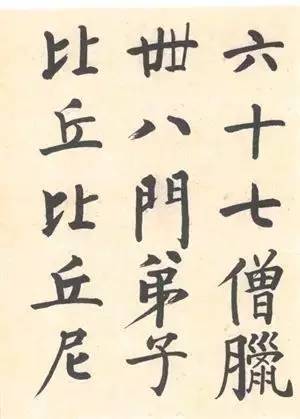 六十七僧臘
卌八門弟子
比丘比丘尼